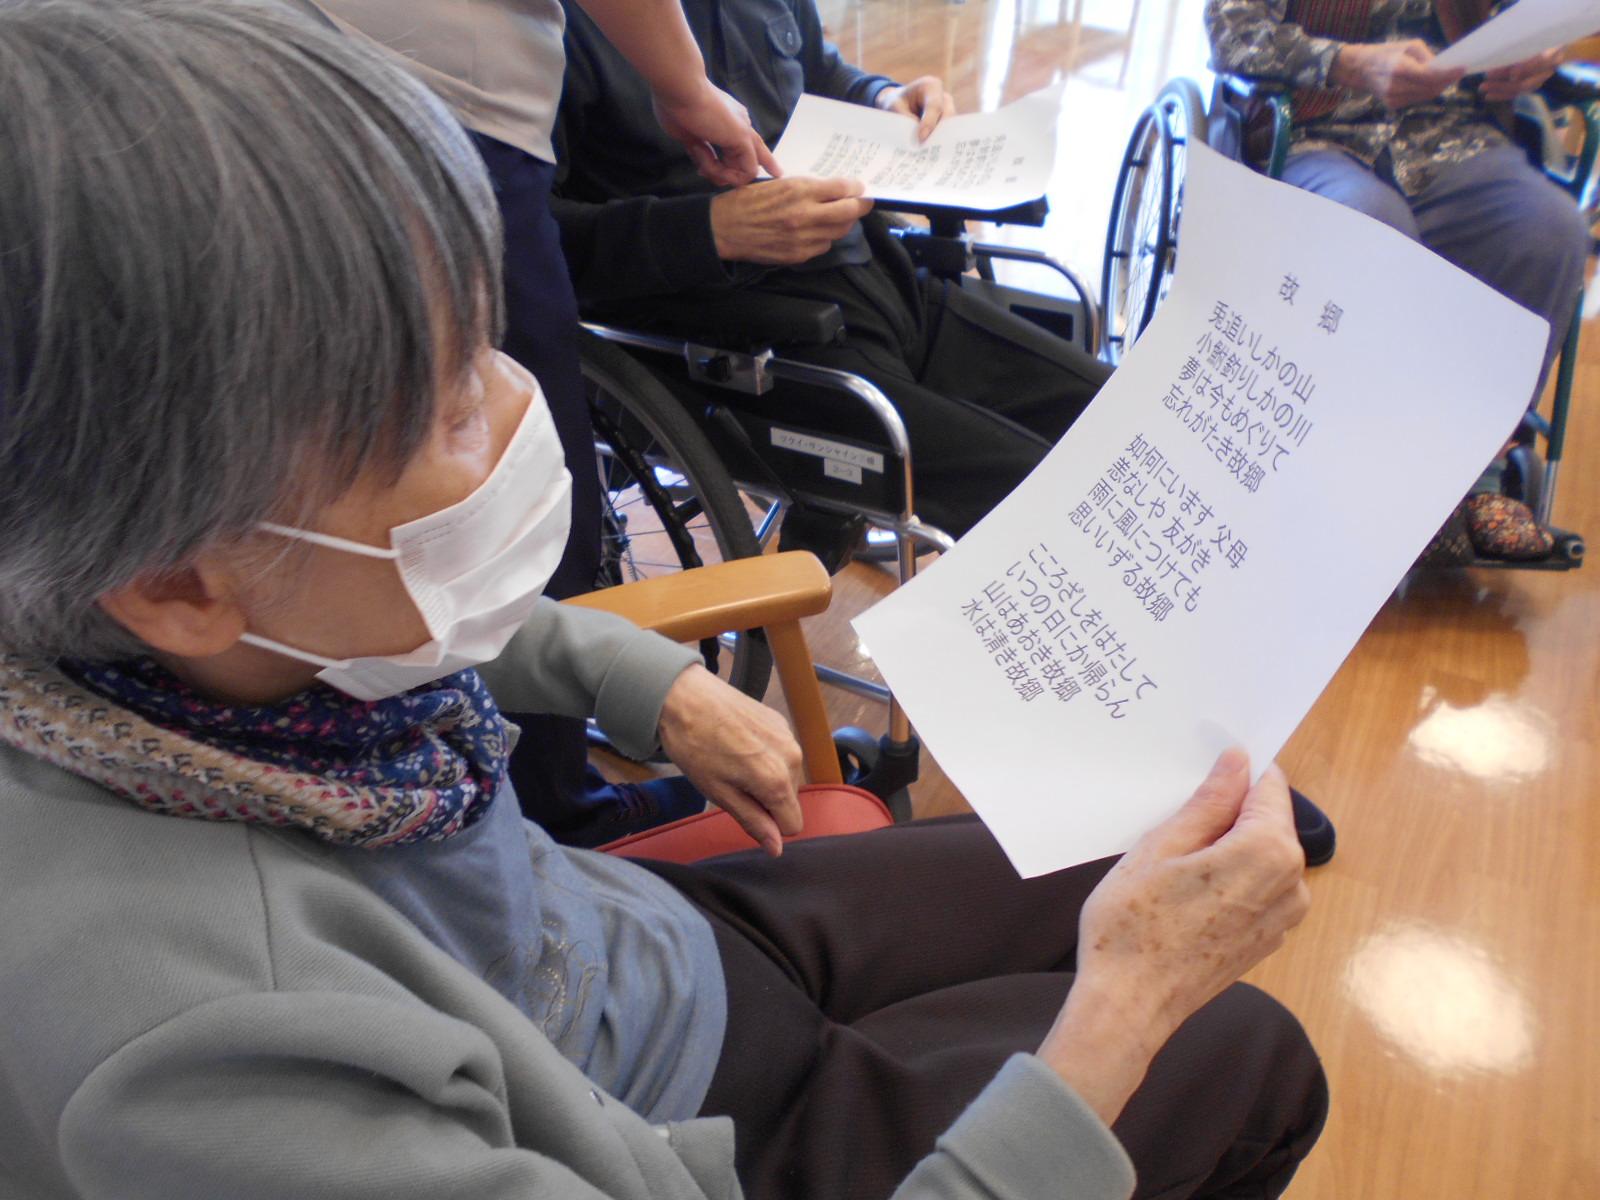 故 郷
兎追いしかの山
小鮒釣りしかの川
夢は今もめぐりて
忘れがたき故郷
如何にいます 父母
恙なしや 友がき
雨に風につけても
思いいずる故郷
こころざしをはたして
いつの日にか帰らん
山はあおき故郷
水は清き故郷